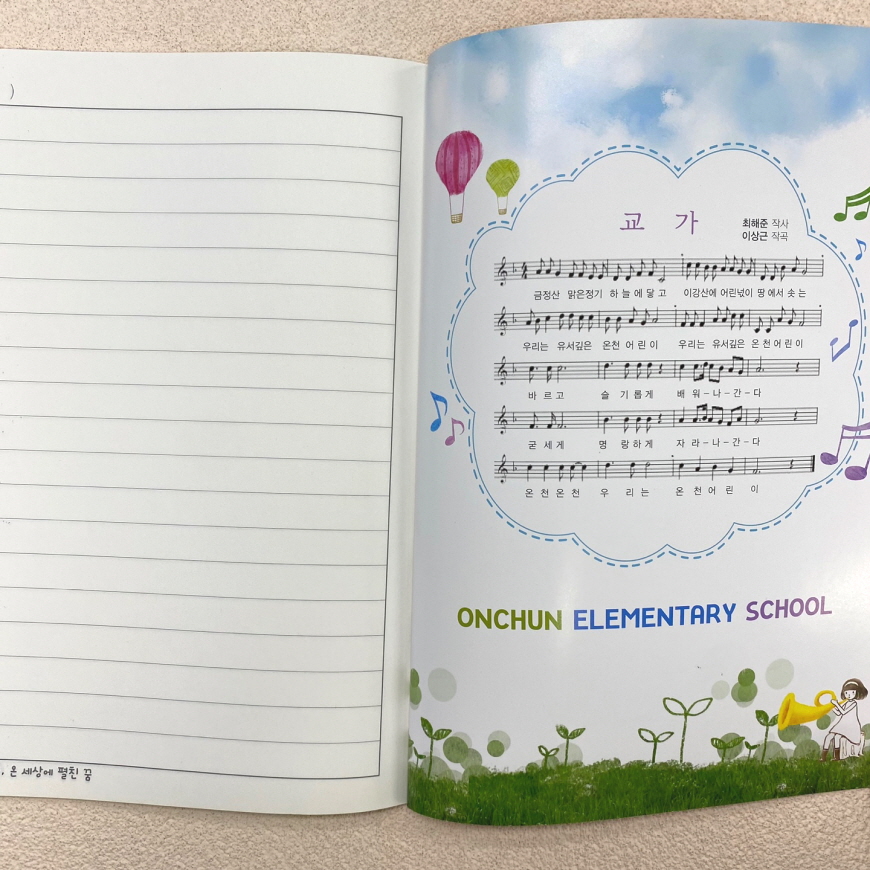 )
, 온 세상에 펼친 꿈
교 가
최해준 작사
이상근 작곡
금정산 맑은정기 하 늘 에 닿 고 이강산에 어린넋이 땅 에서 솟 는
우리는 유서깊은 온천 어 린 이 우리는 유서깊은 온 천 어 린 이
바 르 고 슬 기 롭 게 배 워 – 나 – 간 – 다
굳 세 게 명 랑 하 게 자 라 – 나 – 간 – 다
온 천 온 천 우 리 는 온 천 어 린 이
ONCHUN ELEMENTARY SCHOOL